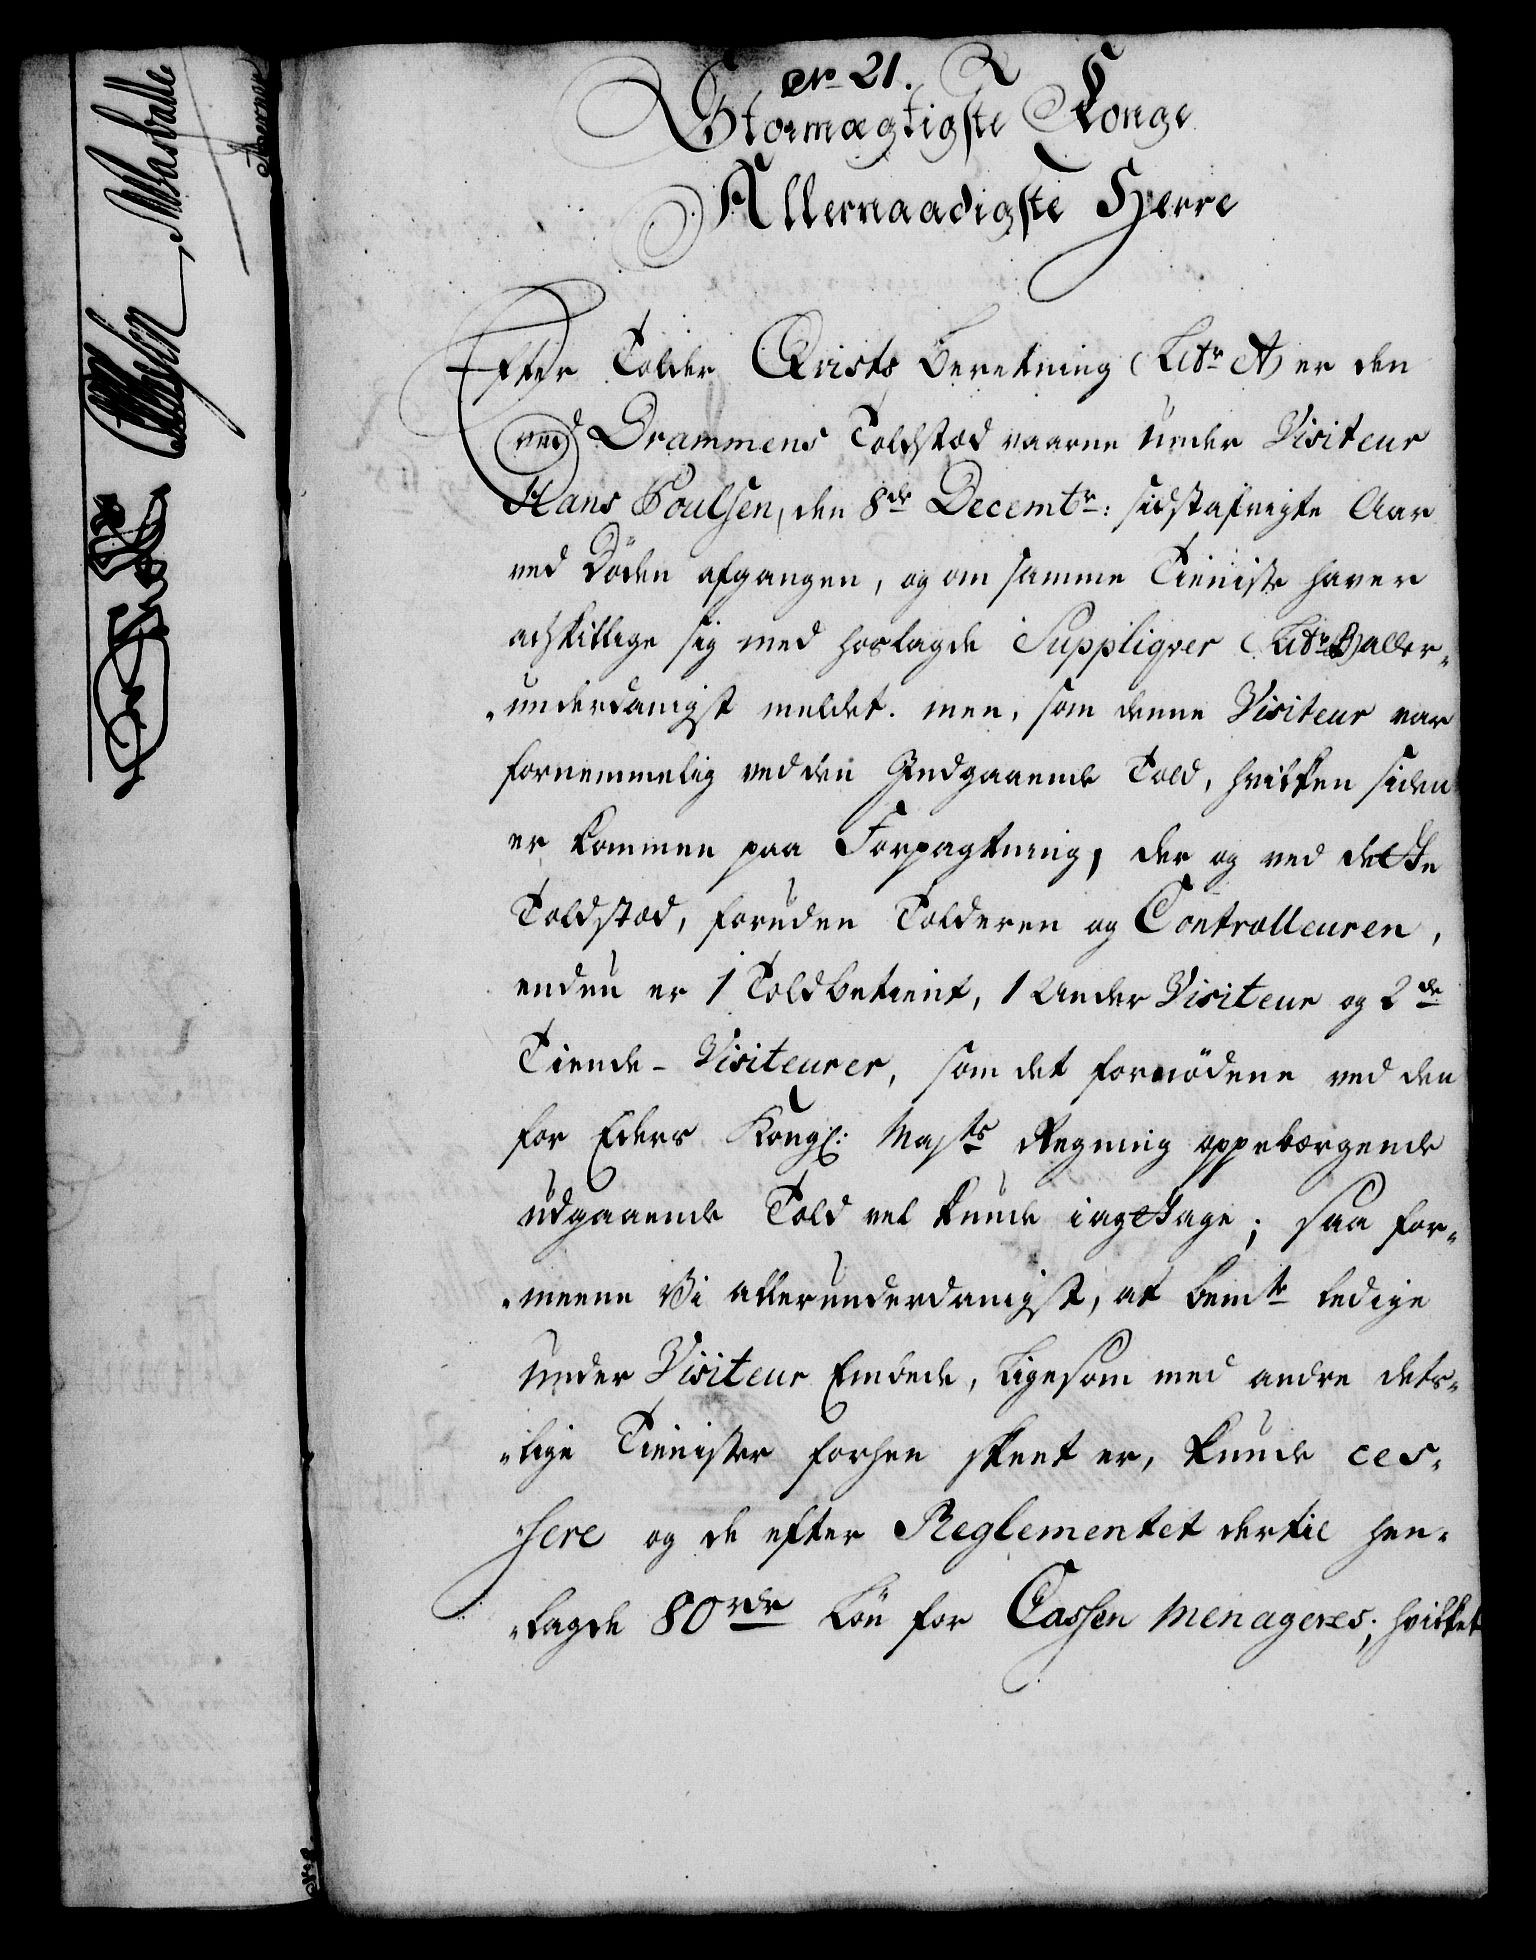 No 21.
Stormægtigste Konge
Allernaadigste Herre
Efter Tolder Qvists Beretning (Litr A) er den
ved Drammens Toldstæd værende Under Visiteur
Hans Poulsen, den 8de Decembr: sidstafvigte Aar
ved Döden afgangen, og om samme Tieniste haver
adskillige sig med hoslagde Suppliqver (Litr B) aller-
underdanigst meldet. men, som denne Visiteur var
fornemmelig ved den Indgaaende Told, hvilken siden
er kommen paa Forpagtning, der og ved dette
Toldstæd, foruden Tolderen og Controlleuren,
endnu er 1 Toldbetient, 1 Under Visiteur og 2de
Tiende-Visiteurer, som det fornödene ved den
for Eders Kongl: Majts Regning oppebærgende
udgaaende Told vel kunde iagttage; saa for-
meene Vi allerunderdanigst, at bemte ledige
Under Visiteur Embede, ligesom med andre des-
lige Tienister forhen skeet er, kunde ces-
sere og de efter Reglementet dertil hen-
lagde 80rdr Lön for Cassen menageres; hvilket